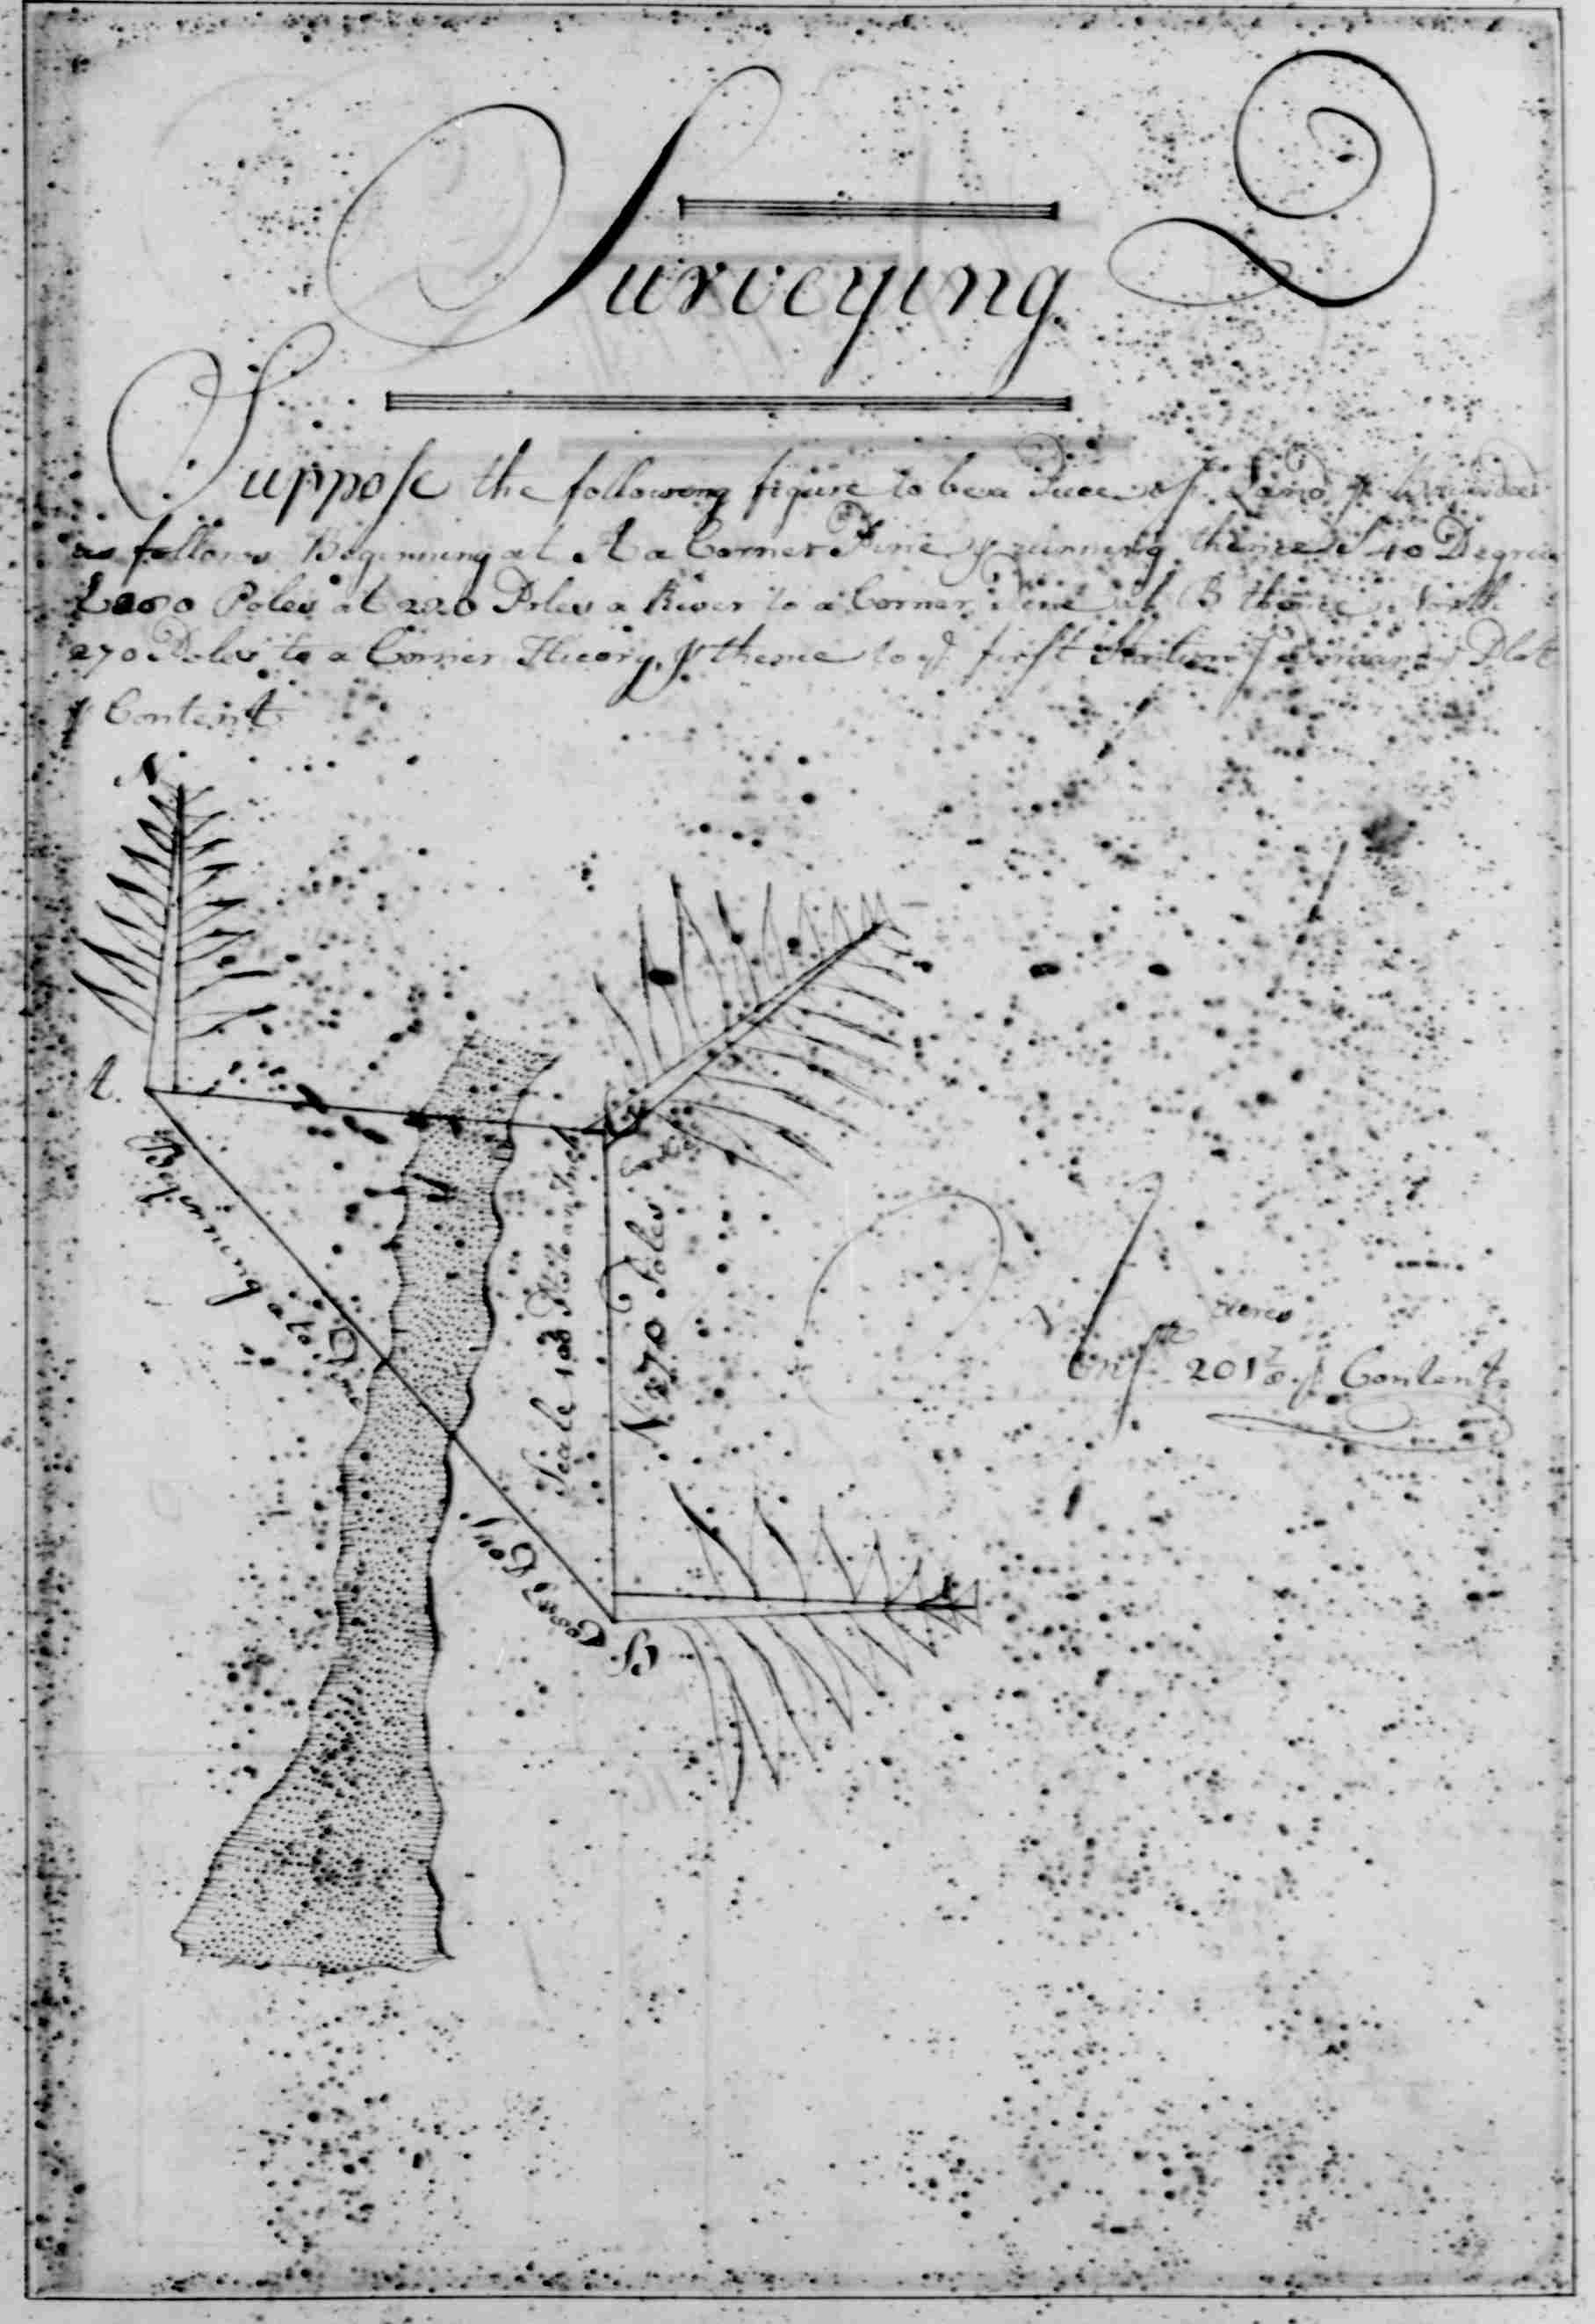 Surveying
Suppose the following figure to be a Piece of Land &
as follows Beginning at A a Corner Pine & running thence S 40 Degrees
E Poles at 220 Poles a River to a Corner Pine at B thence North
270 Poles to a Corner Hicory, & thence to ye first Station Plat
& Content
N
A.
Beginning at a Pine
Scale 100 Pls to an Inch
N 270 Poles
B
Acres
201 7/8 ye Content